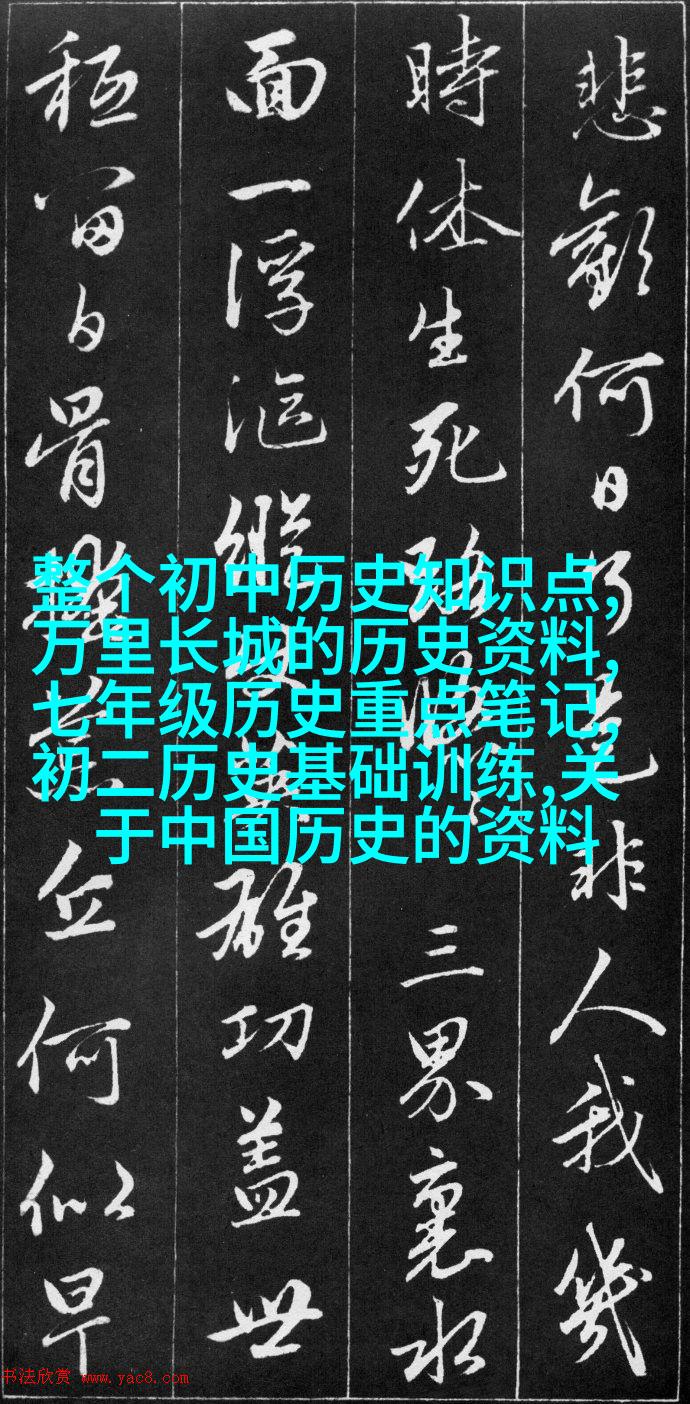 悲歡何日非人我幾
時休生死路三界裏水
面一浮漚縱雄功蓋世
秪留白骨丘何似早
整个初中历史知识点,
万里长城的历史资料,
七年级历史重点笔记,
初二历史基础训练,关
于中国历史的资料
书法欣赏 www.yac8.com